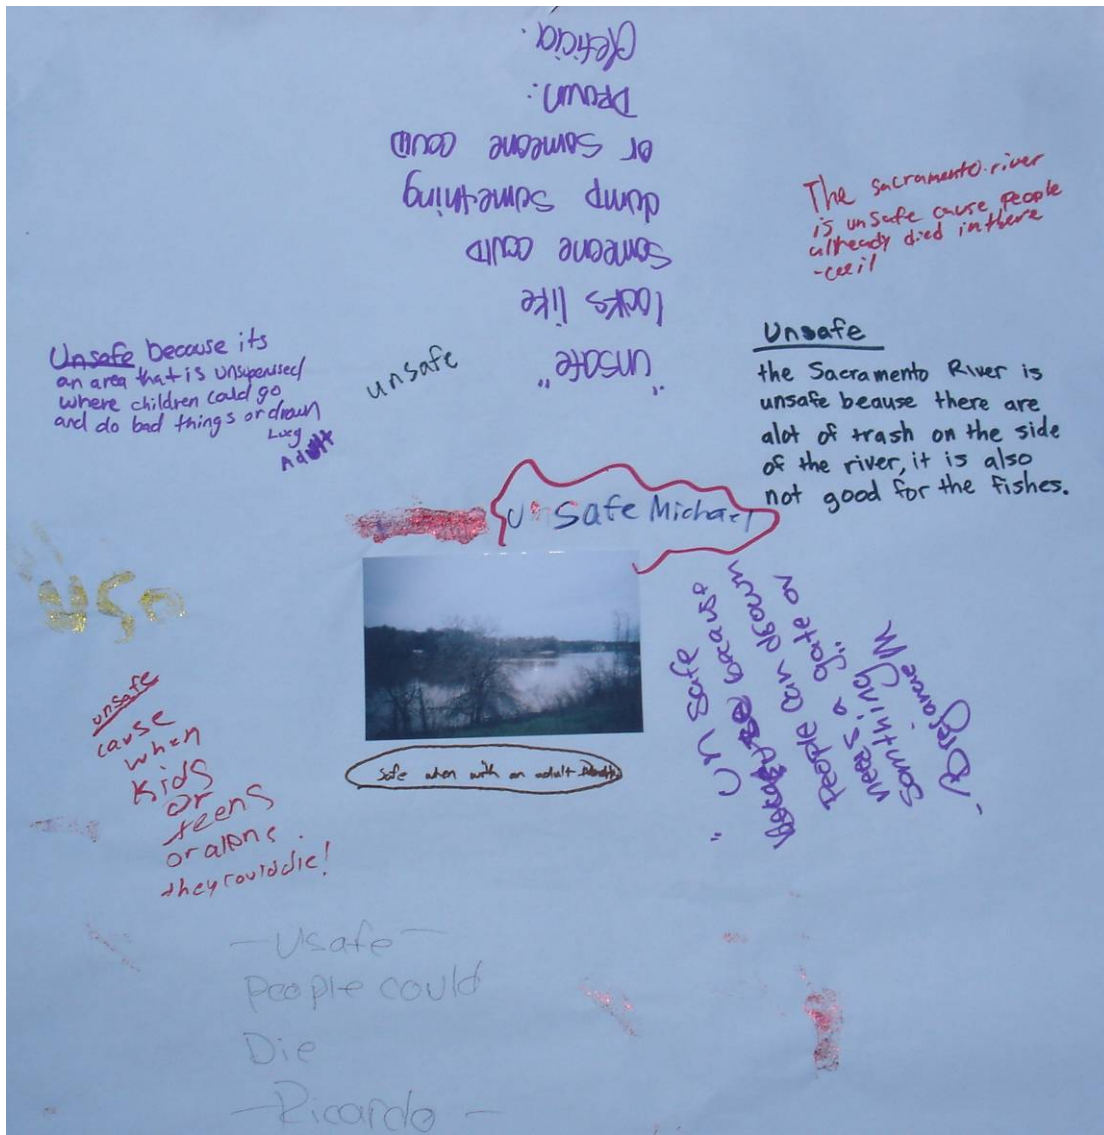 "unsafe"
looks like
someone could
dump something
or someone could
Drown.
The sacramento river
is unsafe cause people
already died in there
-cecil
Unsafe because its
an area that is unsupervised
where children could go
and do bad things or drown
Lucy
Adult
unsafe
Unsafe
the Sacramento River is
unsafe beause there are
alot of trash on the side
of the river, it is also
not good for the fishes.
unsafe Michael
unsafe
cause
when
kids
or
teens
or alone.
they could die!
safe when with an adult
"Un safe
because
people can drown
needs a gate or
somthing"
-Usafe-
people could
Die
-Ricardo-